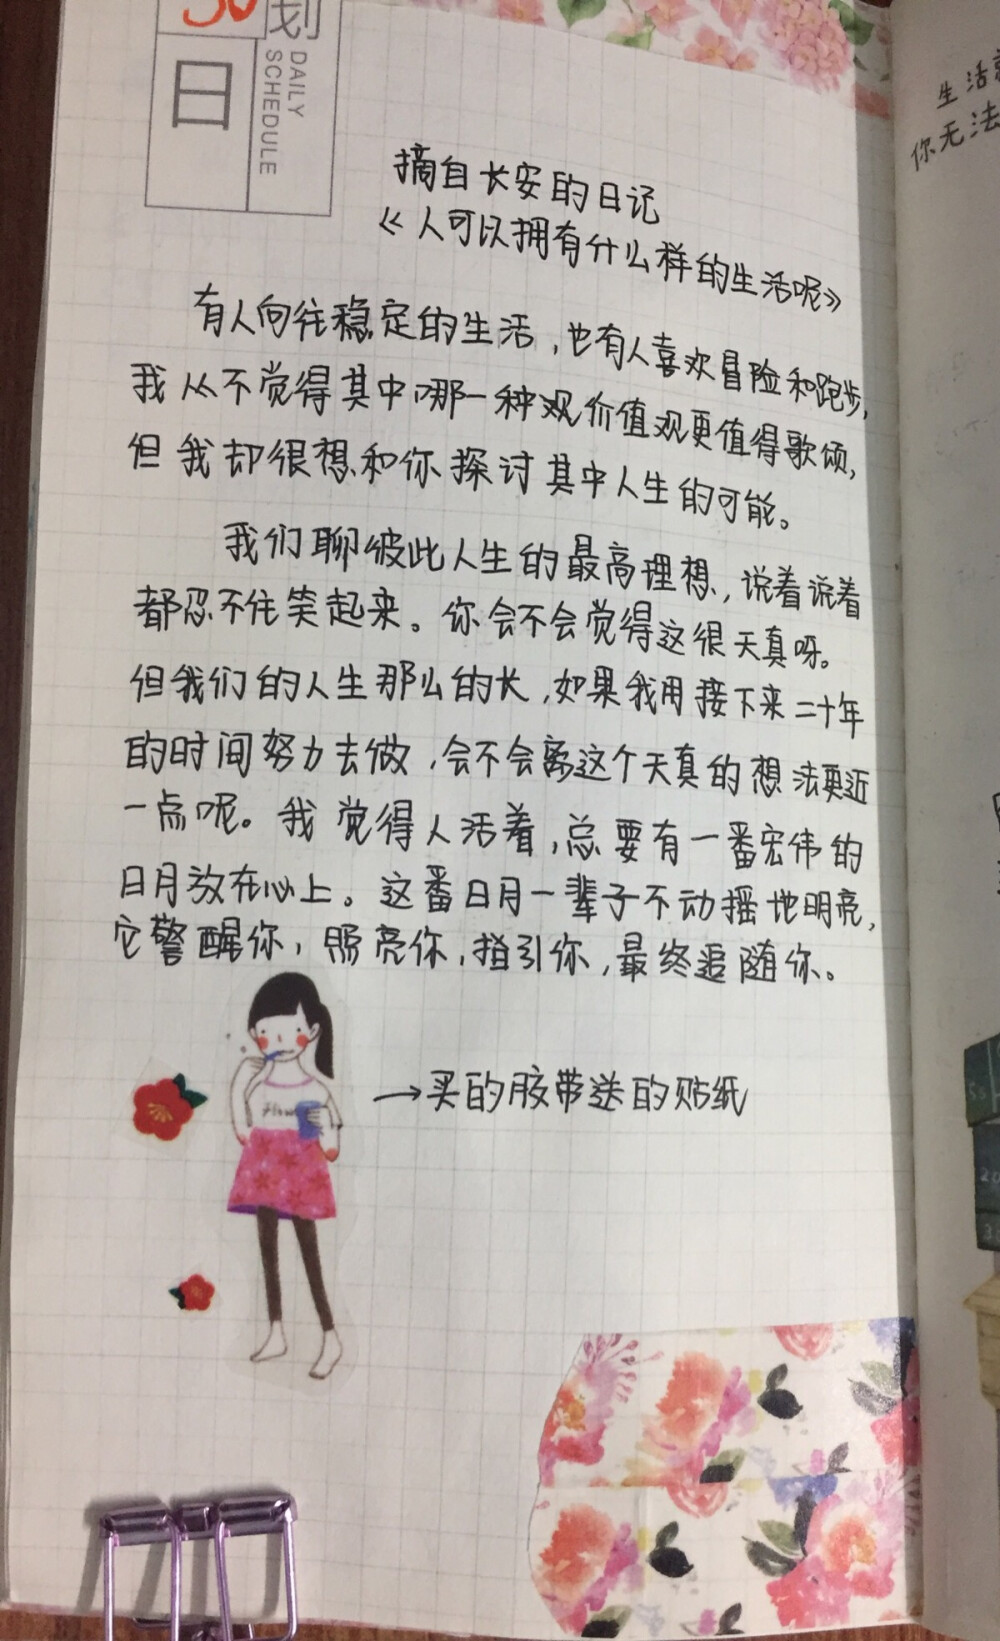 30
划
日
DAILY
SCHEDULE
摘自长安的日记
《人可以拥有什么样的生活呢》
有人向往稳定的生活，也有人喜欢冒险和跑步，
我从不觉得其中哪一种观价值观更值得歌颂，
但我却很想和你探讨其中人生的可能。
我们聊彼此人生的最高理想，说着说着
都忍不住笑起来。你会不会觉得这很天真呀。
但我们的人生那么的长，如果我用接下来二十年
的时间努力去做，会不会离这个天真的想法更近
一点呢。我觉得人活着，总要有一番宏伟的
日月放在心上。这番日月一辈子不动摇地明亮，
它警醒你，照亮你，指引你，最终追随你。
Flow
→买的胶带送的贴纸
生活
你无法